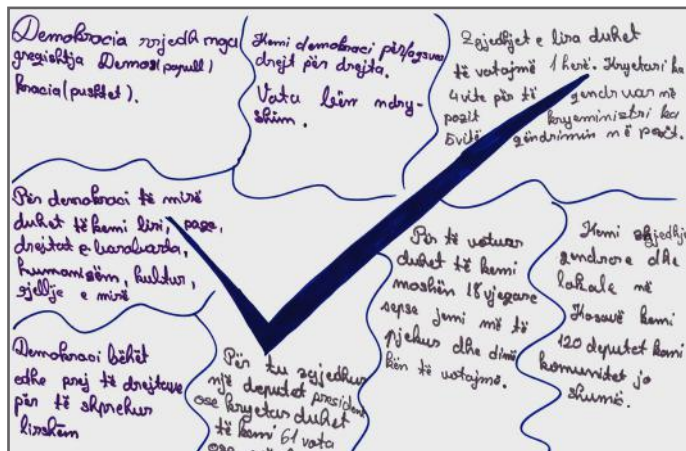 Demokracia rrjedh nga
greqishtja Demos(popull)
kracia(pushtet).
Kemi demokraci për
drejt për drejta.
Vota bën ndry-
shim.
Zgjedhjet e lira duhet
të votojmë 1 herë. Kryetari ka
4 vite për të qendruar në
pozit kryeministri ka
5 vite qëndrimin në pozit.
Për demokraci të mirë
duhet të kemi liri, page,
drejtat e barabarta,
humanizëm, kultur,
sjellje e mirë
Për të votuar
duhet të kemi
moshën 18 vjeçare
sepse jemi më të
pjekur dhe dimë
kën të votojmë.
Kemi zgjedhje
qendrore dhe
lokale në
Kosovë kemi
120 deputet kemi
komunitet jo
shumë.
Demokraci bëhët
edhe prej të drejtave
për të shprehur
lirshëm
Për tu zgjedhur
një deputet president
ose kryetar duhet
të kemi 61 vota